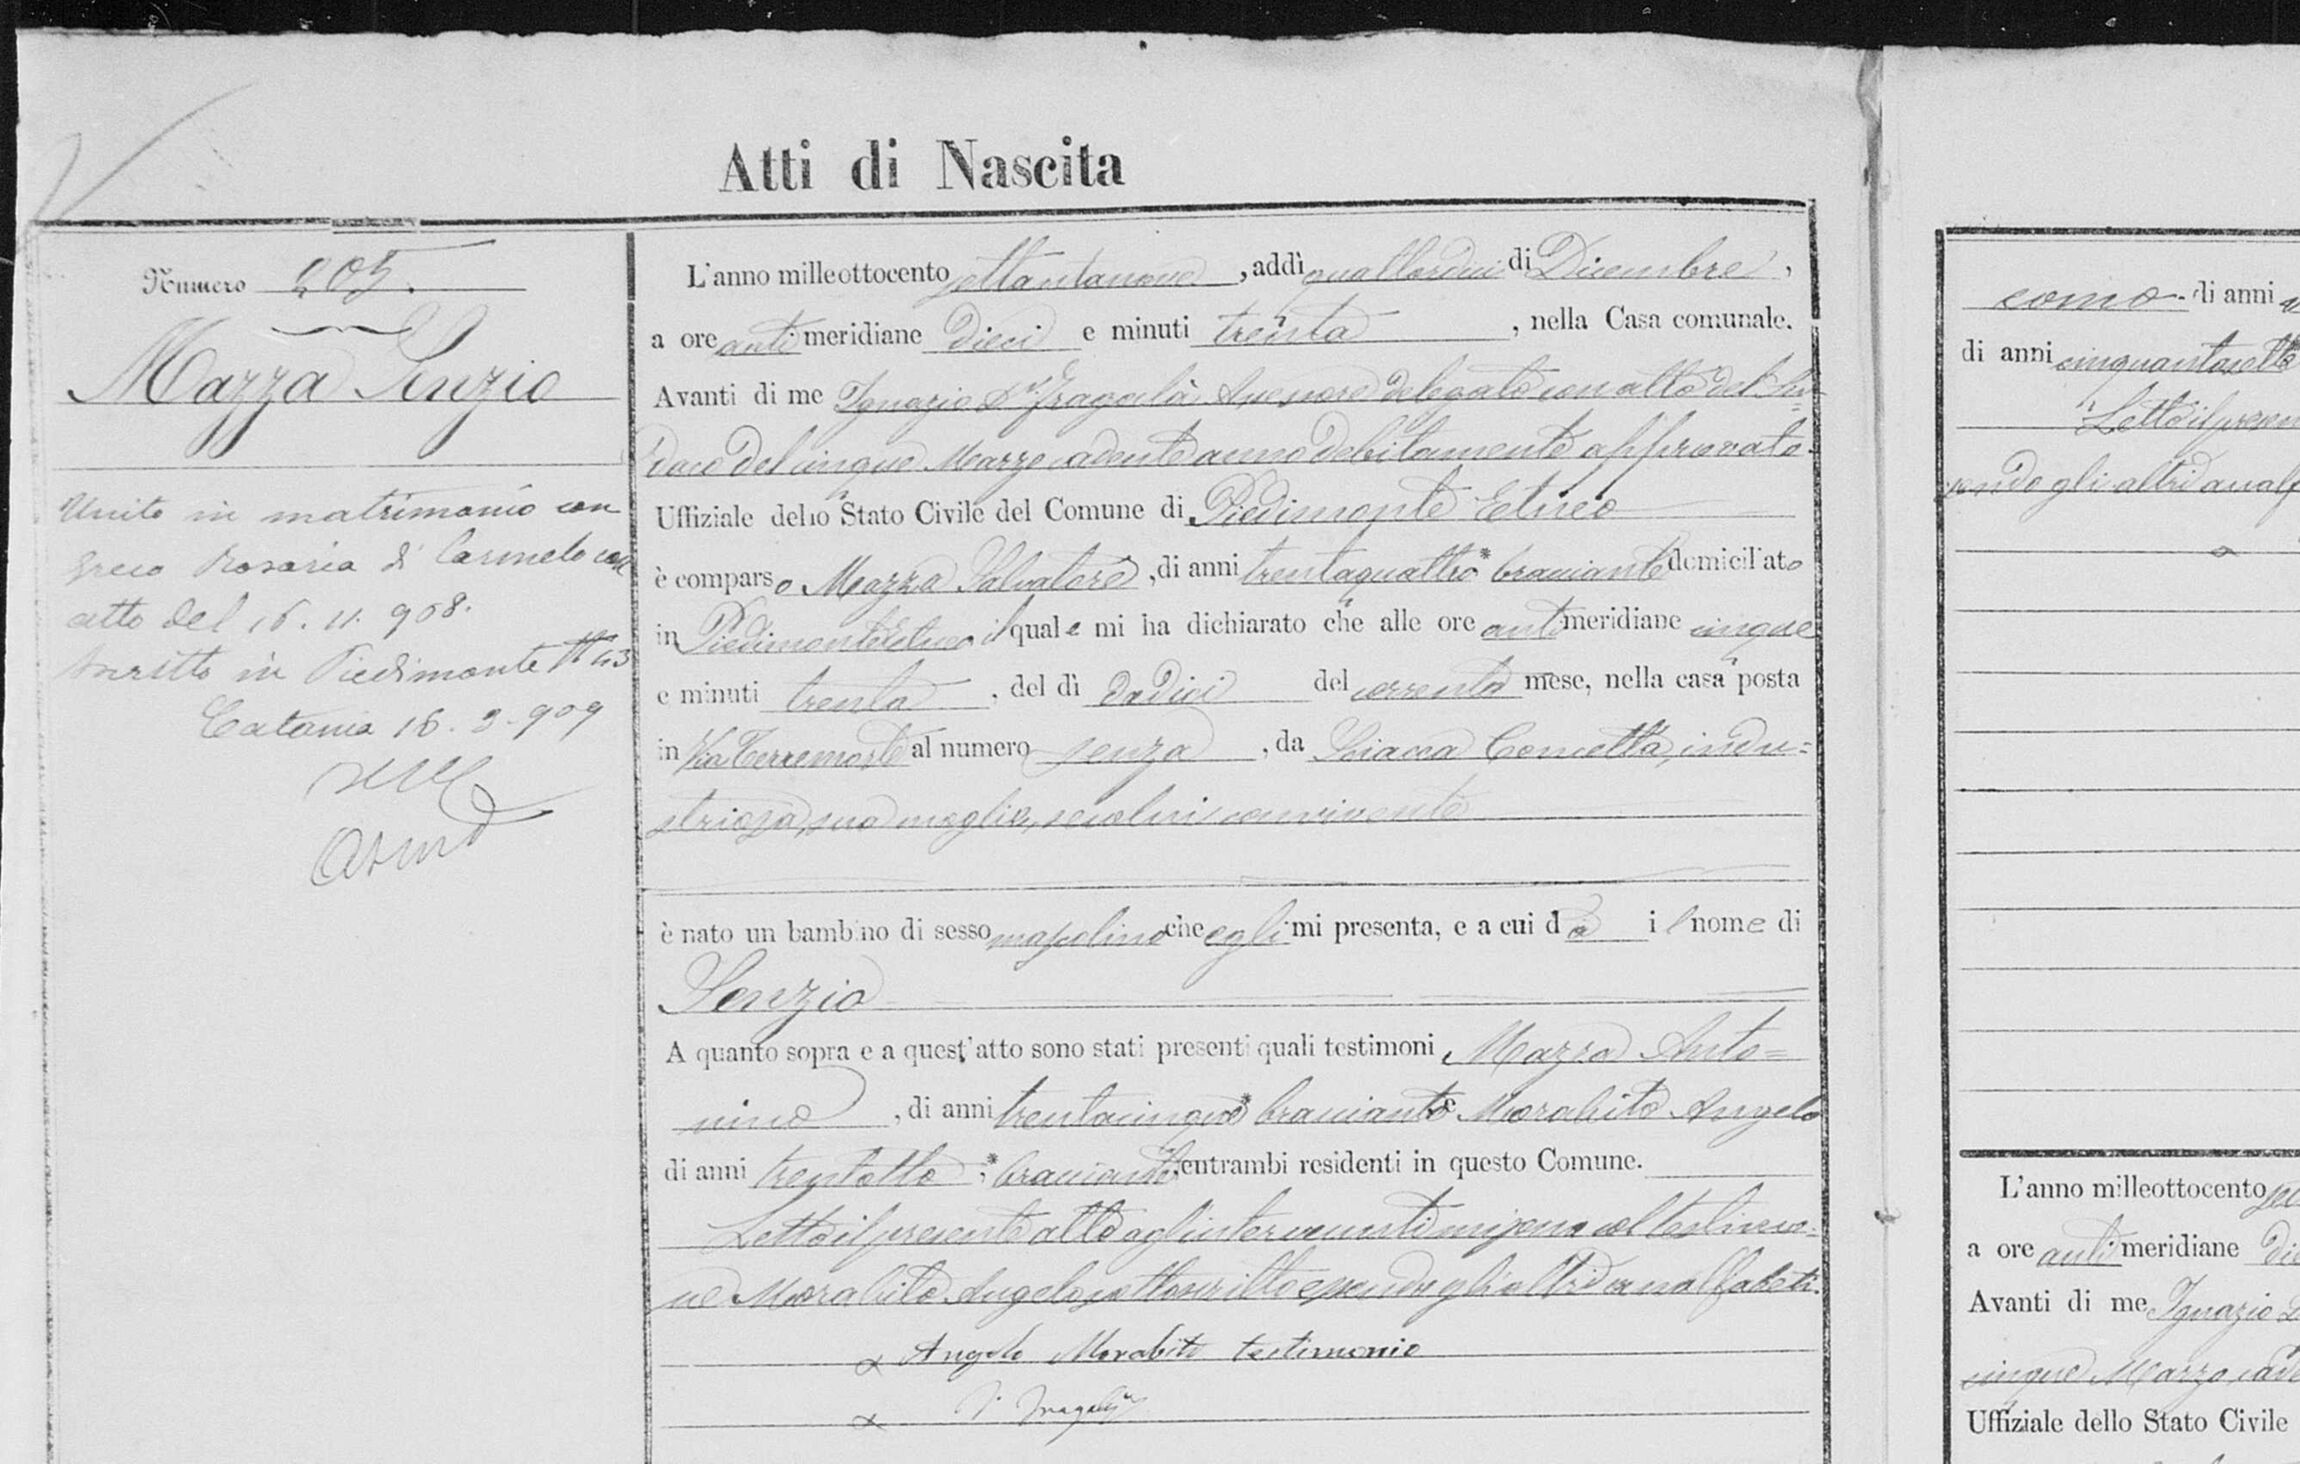 Atti di Nascita
Numero 205.
Mazza Senzio
Unito in matrimonio con
Greco Rosaria di Carmelo con
atto del 16. 11. 908.
Inscritto in Piedimonte N 43
Catania 16. 2. 909
L'anno milleottocento settantanove, addì quattordici di Dicembre,
a ore antimeridiane Dieci e minuti trenta, nella Casa comunale.
Avanti di me Ignazio Dr Fragalà Assessore delegato con atto del Sin=
daco del cinque Marzo cadente anno debitamente approvato.
Uffiziale dello Stato Civile del Comune di Piedimonte Etneo
è comparso Mazza Salvatore, di anni trentaquattro * bracciante domiciliato
in Piedimonte Etneo il quale mi ha dichiarato che alle ore antimeridiane cinque
e minuti trenta, del dì dodici del corrente mese, nella casa posta
in Via Terremorte al numero senza, da Sciacca Concetta, indu=
striosa, sua moglie, secolui convivente
è nato un bambino di sesso mascolino che egli mi presenta, e a cui dà il nome di
Senzio
A quanto sopra e a quest'atto sono stati presenti quali testimoni Mazza Anto=
nino, di anni trentacinque * bracciante e Morabito Angelo
di anni trentotto, * bracciante, entrambi residenti in questo Comune.
Letto il presente atto agli intervenuti mi sono col testimo=
ne Morabito Angelo sottoscritto essendo gli altri analfabeti.
Angelo Morabito testimonio
I. Fragalà
como - di anni
di anni cinquantasette
Letto il presen
sendo gli altri analf
L'anno milleottocento
a ore antimeridiane
Avanti di me Ignazio
cinque Marzo, cade
Uffiziale dello Stato Civile